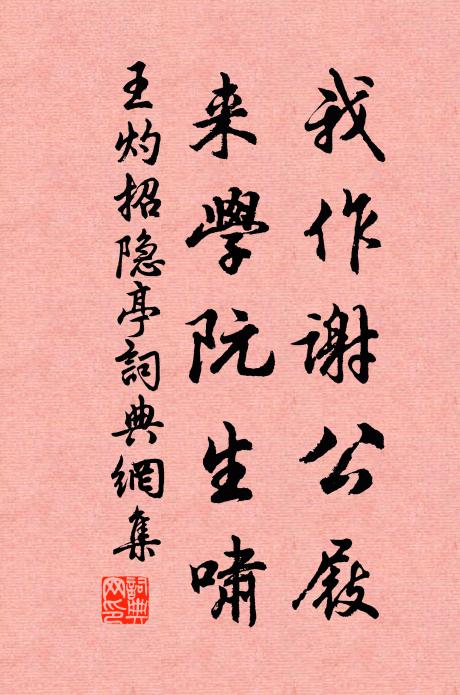 我作谢公屐
来學阮生嘯
王灼招隐亭詞典網集
詞典网印